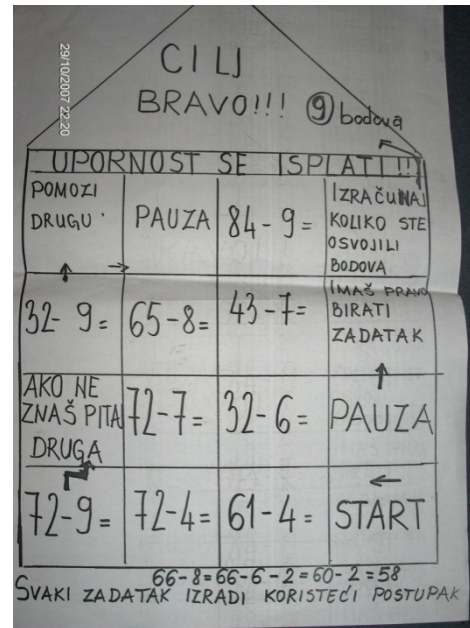 29/10/2007 22:20
CILJ
BRAVO!!!
9 bodova
UPORNOST SE ISPLATI!!
POMOZI
DRUGU
PAUZA
84-9=
IZRAČUNAJ
KOLIKO STE
OSVOJILI
BODOVA
32-9=
65-8=
43-7=
IMAŠ PRAVO
BIRATI
ZADATAK
AKO NE
ZNAŠ PITA
DRUGA
72-7=
32-6=
PAUZA
72-9=
72-4=
61-4=
START
66-8=66-6-2=60-2=58
SVAKI ZADATAK IZRADI KORISTEĆI POSTUPAK